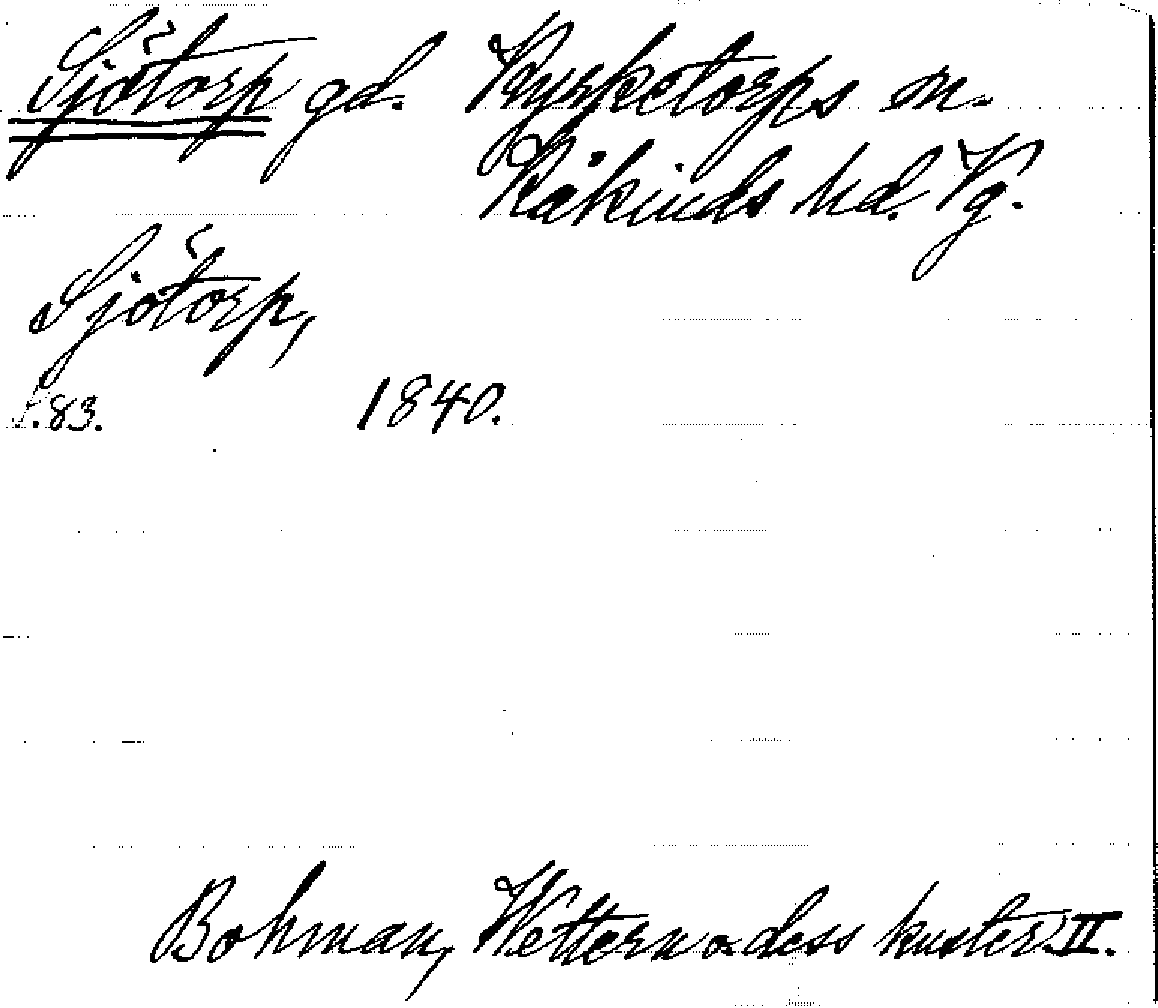 Sjötorp gd. Kyrketorps sn.
Kåkinds hd. Vg.
Sjötorp,
s.83. 1840.
Bohman, Wettern o dess kuster. II.